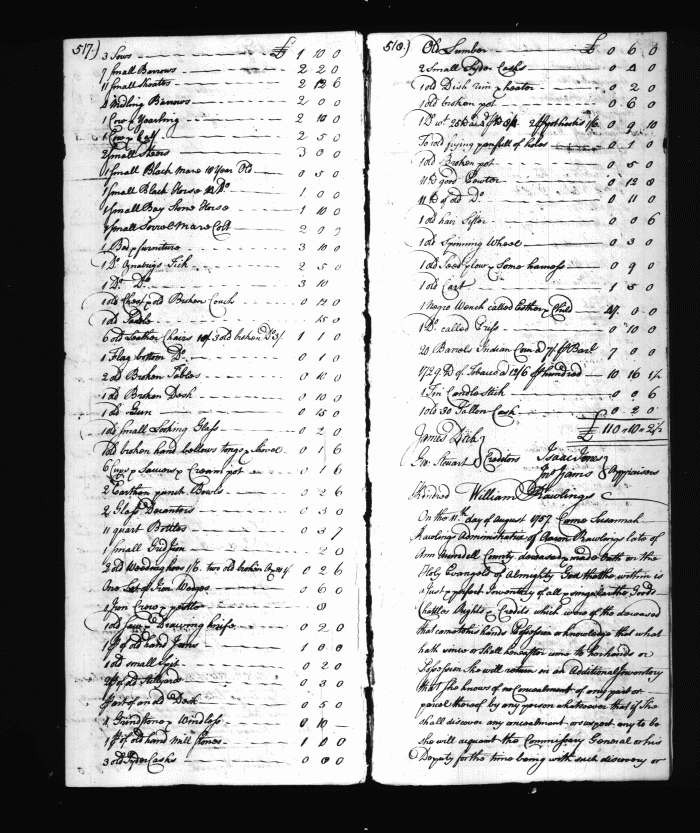 517.)
3 Sows £ 1 10 0
7 Small Barrows 2 2 0
11 Small Shoates 2 12 6
4 Midling Barrows 2 0 0
1 Cow & Yearling 2 10 0
1 Cow & Calf 2 5 0
2 Small Steers 3 0 0
1 Small Black Mare 10 Year Old 0 5 0
1 Small Black Horse 12 Do 1 0 0
1 Small Bay Stone Horse 1 10 0
1 Small Sorrel Mare Colt 2 0 0
1 Bed & furniture 3 10 0
1 Do Oznabrigs Tick 2 5 0
1 Do Do 3 10
1 old Chest & old Broken Couch 0 12 0
1 old Saddle 15 0
6 old Leather Chairs 3 old broken Do 3/ 1 1 0
1 Flag bottom Do 0 1 0
2 old Broken Tables 0 10 0
1 old Broken Desk 0 10 0
1 old Gun 0 15 0
1 old Small Looking Glass 0 2 0
1 old broken hand bellows tongs & shovel 0 1 6
6 Cups & Sawcers & Cream pot 0 1 6
2 Earthen punch Bowls 2 6
2 Glass Decanters 0 3 0
11 quart Bottles 0 3 7
1 Small Gridiron 2 0
3 old Weeding hoes 1/6 two old broken 0 2 6
One Set of Iron Wedges 0 6 0
1 Iron Crow &
1 old Saw & Drawing knife 0 2 0
1 pr of old hand Irons 1 0 0
1 old small Spit 0 2 0
2 pr of old Stillyards 0 3 0
part of an old Desk 0 5 0
1 Grindstone & Windlass 0 10
1 pr of old hand Mill Stones 1 10 0
3 old Syder Casks 0
518.)
Old Lumber £ 0 6 0
2 Small Syder Casks 0 4 0
1 old Dish rim & heater 0 2 0
1 old broken pot 0 6 0
2 pr pot hooks 1/6 0 9 10
To 1 old frying pan full of holes 0 1 0
1 old Broken pot 0 5 0
good Pewter 0 12 8
11 lb of old Do 0 11 0
1 old hair Sifter 0 0 6
1 old Spinning Wheel 0 3 0
1 old Seed plow & Some harness 0 9 0
1 old Cart 1 5 0
1 Negro Wench called Esther & Child 0 0
1 Do called 0 10 0
20 Barrels Indian Corn a 7/ pr Barl 7 0 0
1729 lb of Tobacco a 12/6 pr hundred 10 16 1
1 Tin Candle Stick 0 0 6
1 old 30 Gallon Cask 0 2 0
£ 110 10 2
James Dick
Geo: Steuart } Creditors
Isaac Jones
Jno James } Appraisers
Kindred William Rawlings
On the 11th day of August 1757 Came Susannah
Rawlings Administratrix of Aaron Rawlings late of
Ann Arundell County deceased & made Oath on the
Holy Evangels of Almighty God that the within is
a just & perfect Inventory of all & singular the Goods
Chattles Rights & Credits which were of the deceased
that came to his hands Possession or knowledge that what
hath since or shall hereafter come to her hands or
Possession She will return in an Additional Inventory
that She knows of no Concealment of any part or
parcel thereof by any person whatsoever that if She
shall discover any concealment or suspect any to be
She will acquaint the Commissary General or his
Deputy for the time being with such discovery or